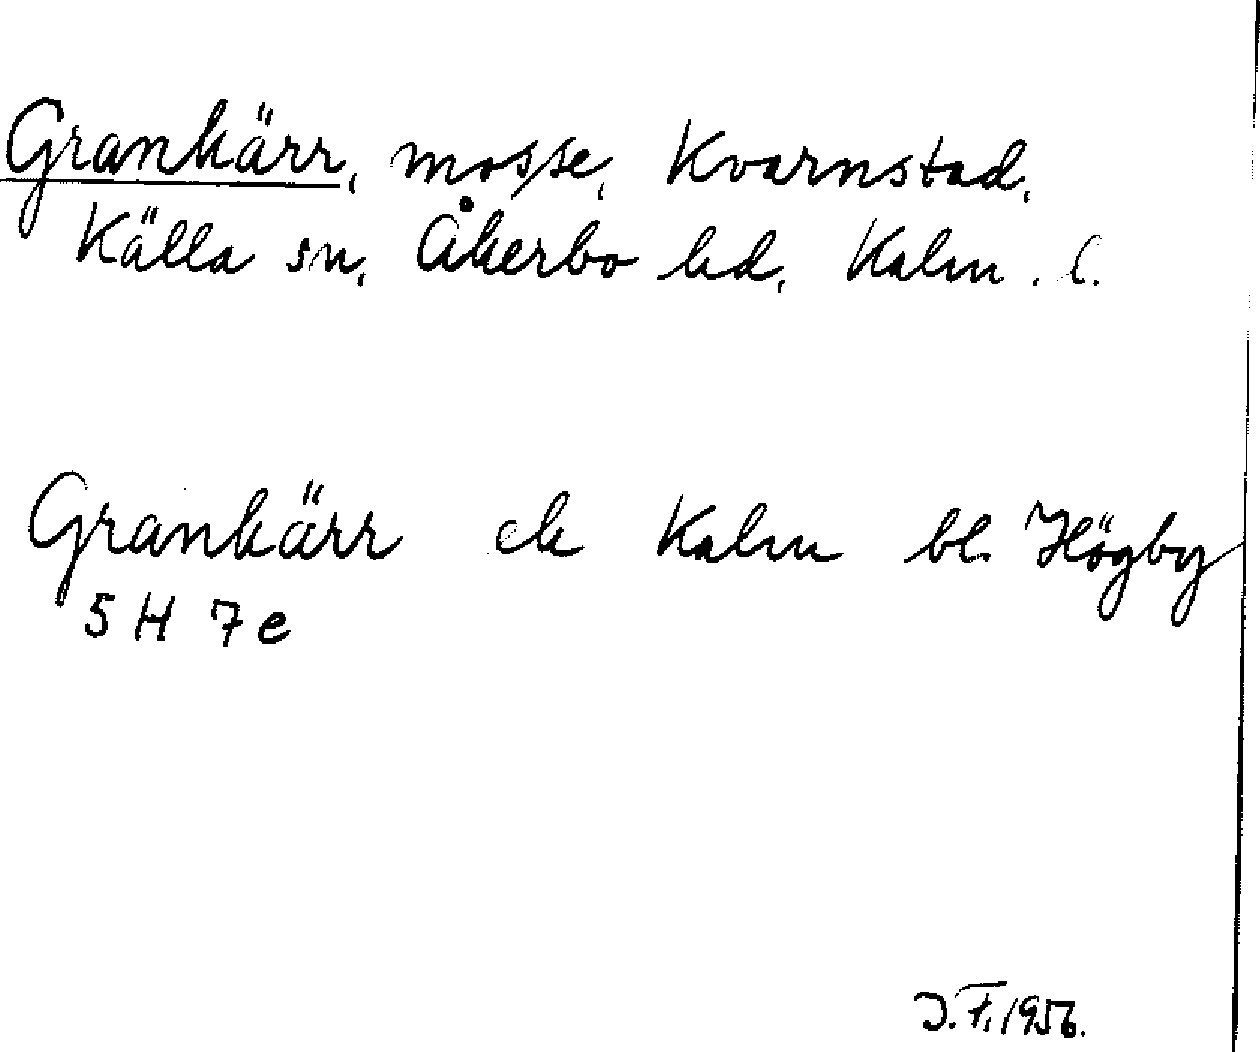 Grankärr, mosse, Kvarnstad,
Källa sn, Åkerbo hd, Kalm. l.
Grankärr ek Kalm bl. Högby
5 H 7 e
J.F. 1956.